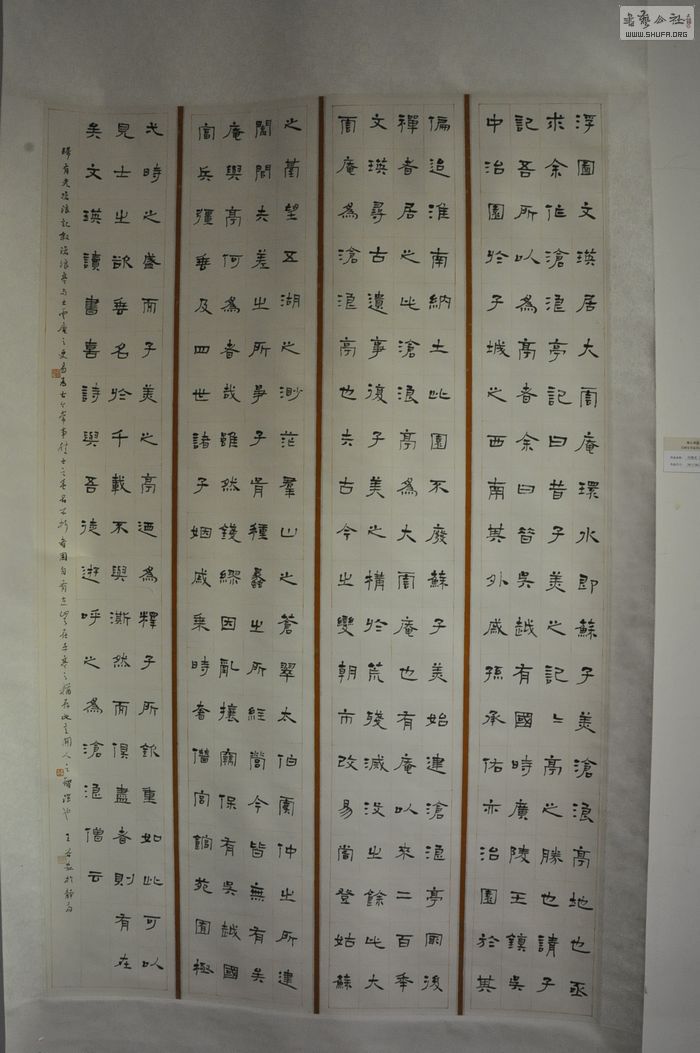 書藝公社
WWW.SHUFA.ORG
浮圖文瑛居大雲庵環水即蘇子美滄浪亭地也亟
求余作滄浪亭記曰昔子美之記〻亭之勝也請子
記吾所以為亭者余曰昔吳越有國時廣陵王鎮吳
中治園於子城之西南其外戚孫承佑亦治園於其
偏迨淮南納土此園不廢蘇子美始建滄浪亭最後
禪者居之此滄浪亭為大雲庵也有庵以來二百年
文瑛尋古遺事復子美之構於荒殘滅沒之餘此大
雲庵為滄浪亭也夫古今之變朝市改易嘗登姑蘇
之臺望五湖之渺茫羣山之蒼翠太伯虞仲之所建
闔閭夫差之所爭子胥種蠡之所經營今皆無有矣
庵與亭何為者哉雖然錢繆因亂攘竊保有吳越國
富兵彊垂及四世諸子姻戚乘時奢僭宮館苑囿極
弌時之盛而子美之亭迺為釋子所欽重如此可以
見士之欲垂名於千載不與澌然而俱盡者則有在
矣文瑛讀書喜詩與吾徒遊呼之為滄浪僧云